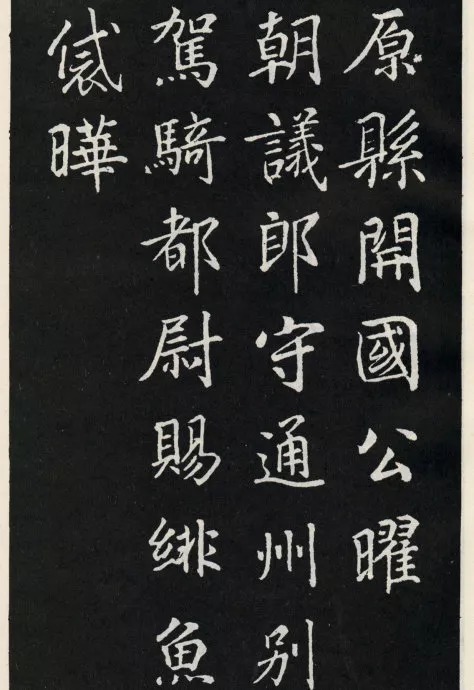 原縣開國公曜
朝議郎守通州別
駕騎都尉賜緋魚
袋曄